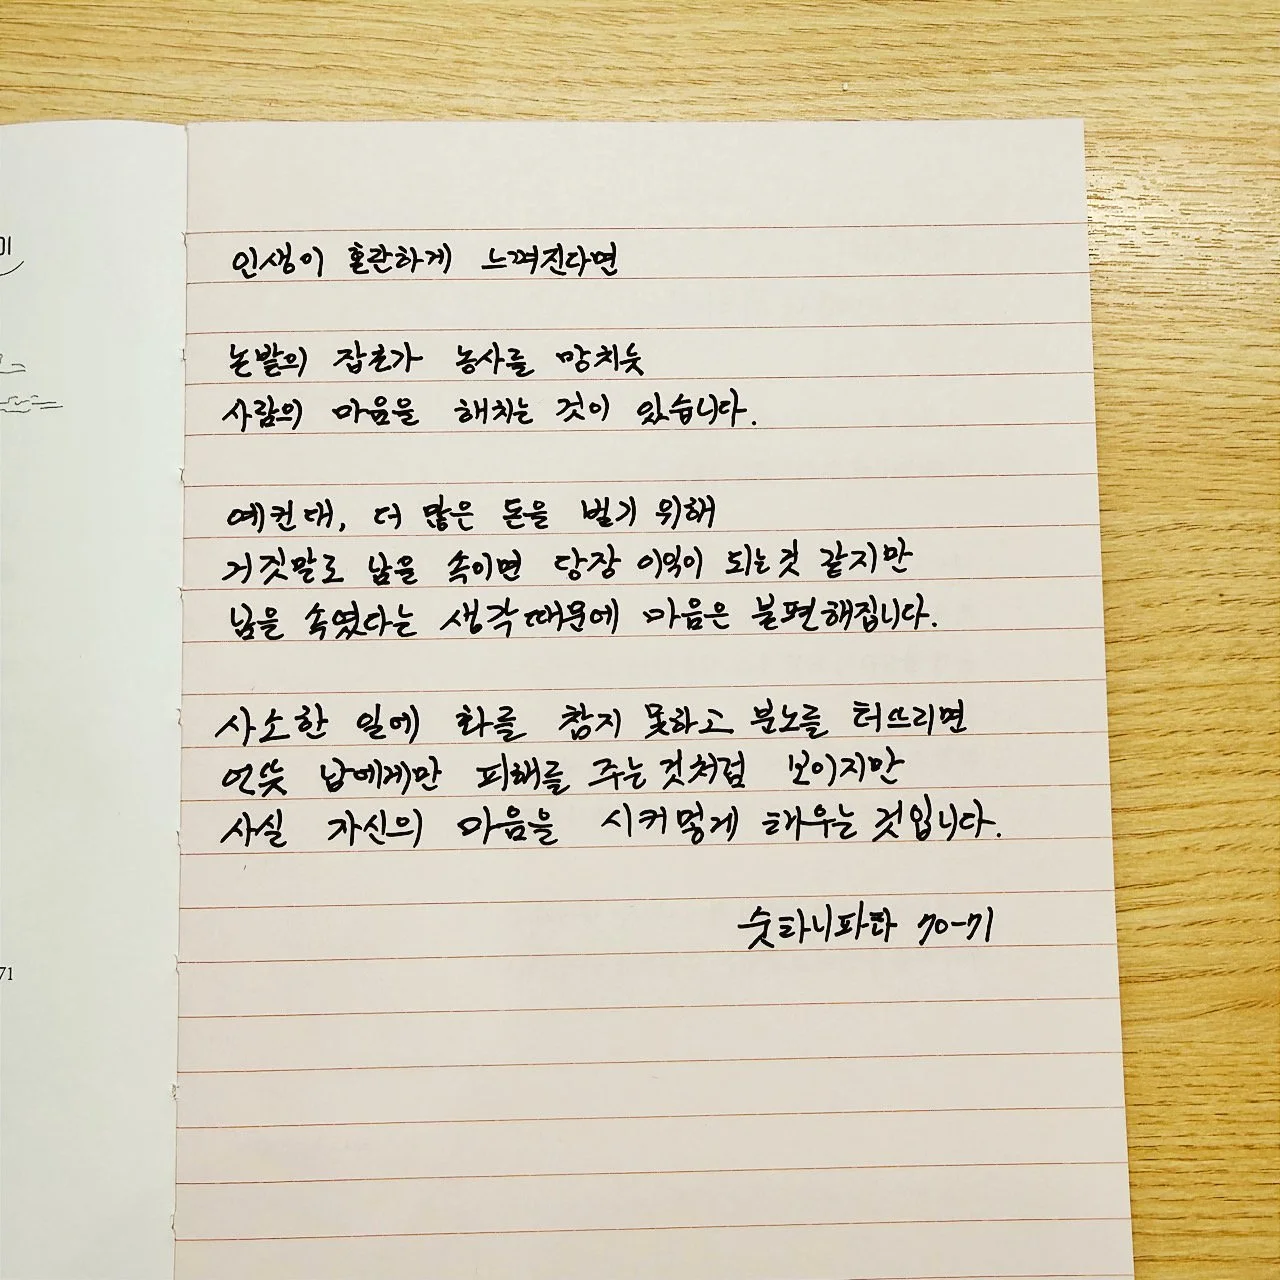 인생이 혼란하게 느껴진다면
논밭의 잡초가 농사를 망치듯
사람의 마음을 해치는 것이 있습니다.
예컨대, 더 많은 돈을 벌기 위해
거짓말로 남을 속이면 당장 이익이 되는것 같지만
남을 속였다는 생각때문에 마음은 불편해집니다.
사소한 일에 화를 참지 못하고 분노를 터뜨리면
언뜻 남에게만 피해를 주는것처럼 보이지만
사실 자신의 마음을 시커멓게 태우는 것입니다.
숫타니파타 70-71
71